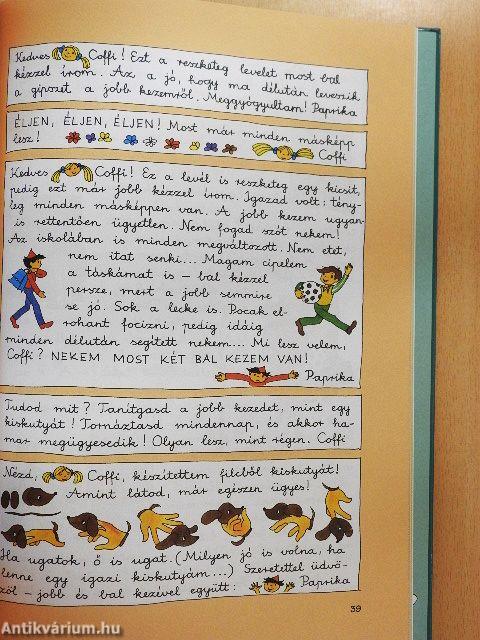 Kedves Coffi! Ezt a reszketeg levelet most bal
kézzel írom. Az a jó, hogy ma délután leveszik
a gipszet a jobb kezemről. Meggyógyultam! Paprika
ÉLJEN, ÉLJEN, ÉLJEN! Most már minden másképp
lesz! Coffi
Kedves Coffi! Ez a levél is reszketeg egy kicsit,
pedig ezt már jobb kézzel írom. Igazad volt: tény-
leg minden másképpen van. A jobb kezem ugyan-
is rettentően ügyetlen. Nem fogad szót nekem!
Az iskolában is minden megváltozott. Nem etet,
nem itat senki... Magam cipelem
a táskámat is – bal kézzel
persze, mert a jobb semmire
se jó. Sok a lecke is. Pocak el-
rohant focizni, pedig idáig
minden délután segített nekem... Mi lesz velem,
Coffi? NEKEM MOST KÉT BAL KEZEM VAN!
Paprika
Tudod mit? Tanítgasd a jobb kezedet, mint egy
kiskutyát! Tornáztasd mindennap, és akkor ha-
mar megügyesedik! Olyan lesz, mint régen. Coffi
Nézd, Coffi, készítettem filcből kiskutyát!
Amint látod, már egészen ügyes!
Ha ugatok, ő is ugat. (Milyen jó is volna, ha
lenne egy igazi kiskutyám...) Szeretettel üdvö-
zöl – jobb és bal kezével együtt: Paprika
39
Antikvárium.hu